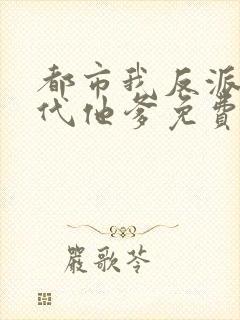 都市我反派
代他爹免費
嚴歌苓